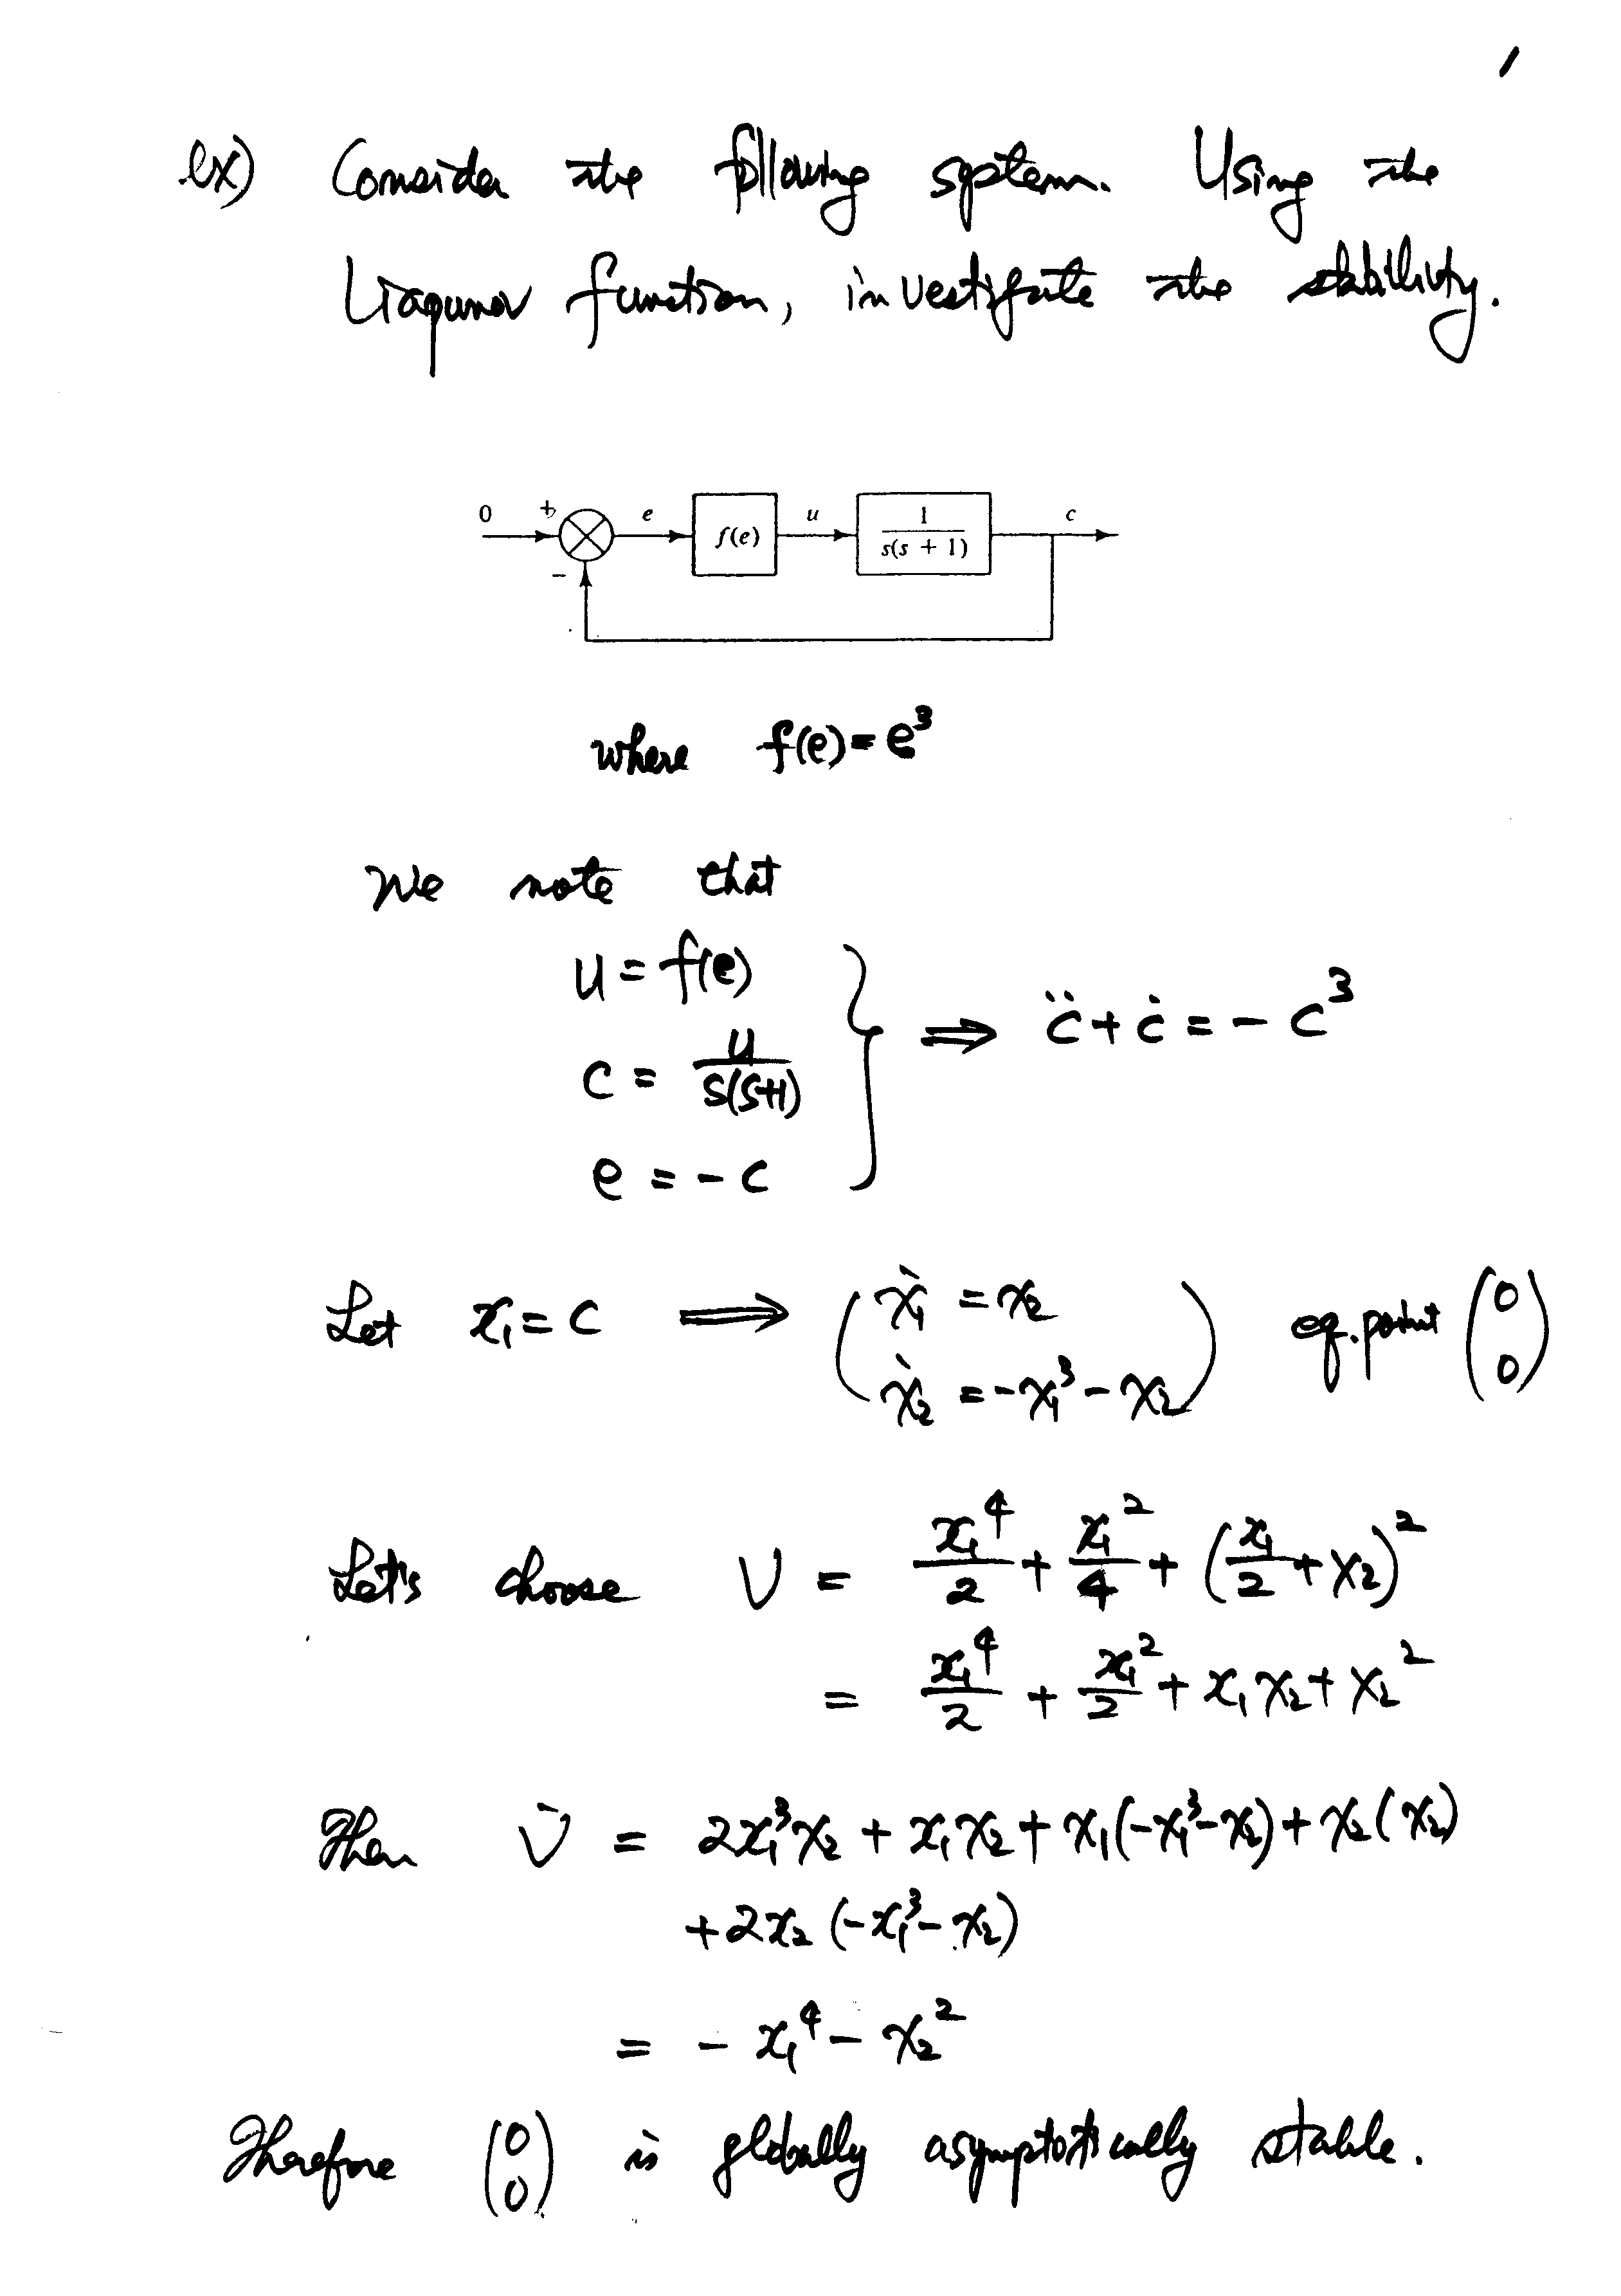 1
ex) Consider the following system. Using the
Liapunov function, investigate the stability.
0 + e f(e) u 1/(s(s + 1)) c
−
where f(e) = e³
We note that
u = f(e)
c = u/(s(s+1)) ⟹ c̈ + ċ = - c³
e = - c
Let x₁ = c ⟹ ( ẋ₁ = x₂
ẋ₂ = -x₁³ - x₂ ) eq. point (0 0)
Let's choose V = x₁⁴/2 + x₁²/4 + (x₁/2 + x₂)²
= x₁⁴/2 + x₁²/2 + x₁x₂ + x₂²
Then V̇ = 2x₁³x₂ + x₁x₂ + x₁(-x₁³-x₂) + x₂(x₂)
+2x₂(-x₁³-x₂)
= - x₁⁴ - x₂²
Therefore (0 0) is globally asymptotically stable.